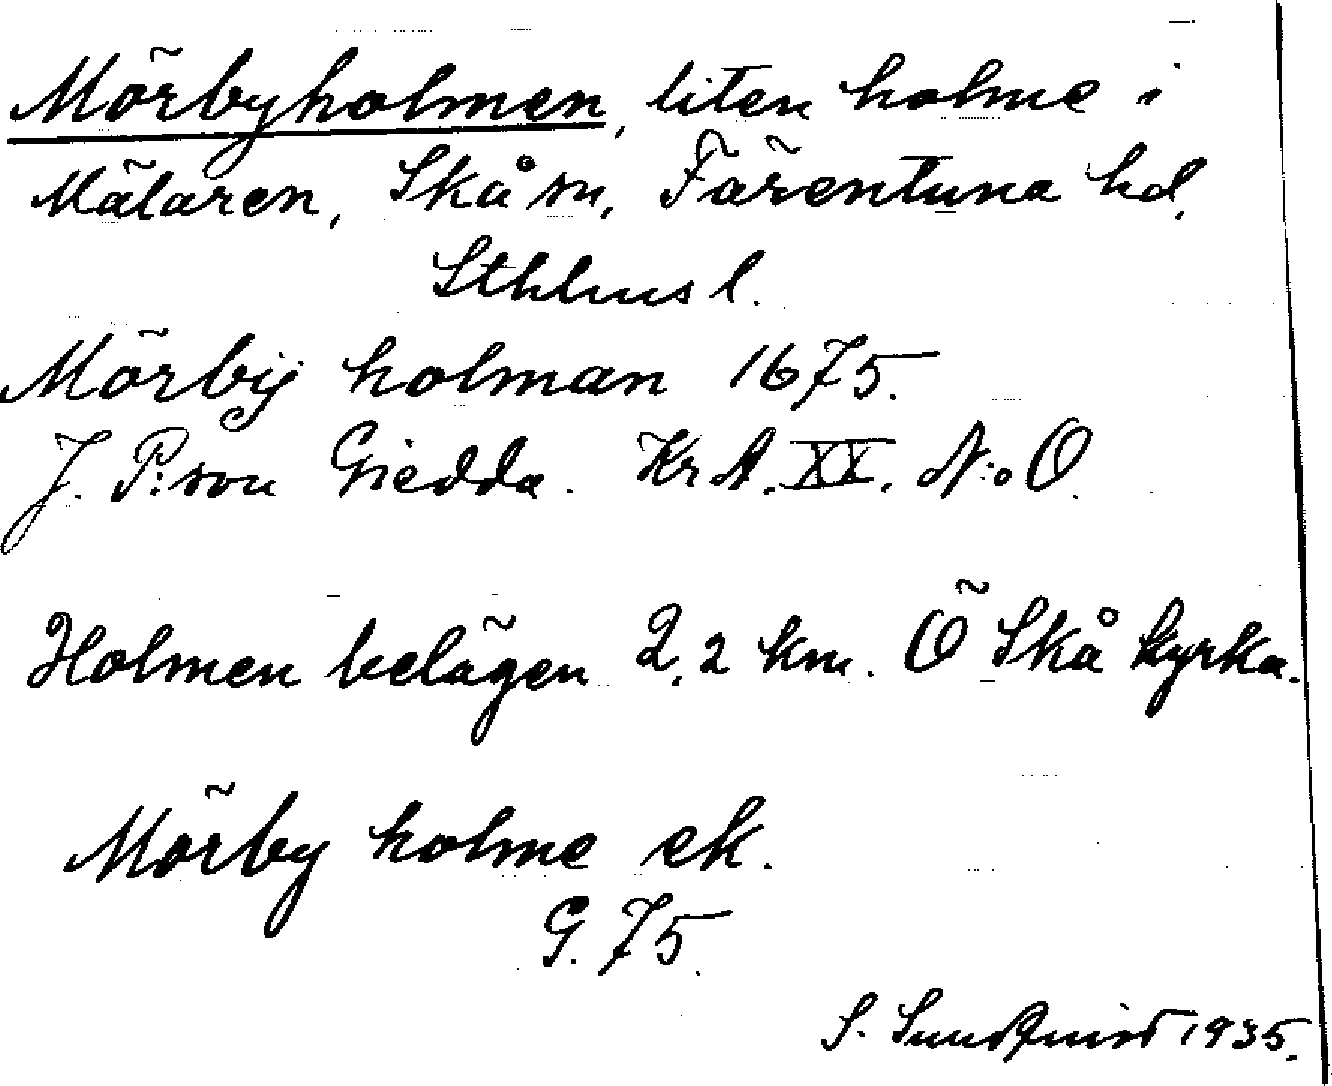 Mörbyholmen, liten holme i
Mälaren, Skå sn, Färentuna hd,
Sthlms l.
Mörbÿ holman 1675.
J. P:son Giedda. KrA. XX. N:o O.
Holmen belägen 2,2 km. Ö Skå kyrka.
Mörby holme ek.
G. 75.
S. Sundquist 1935.